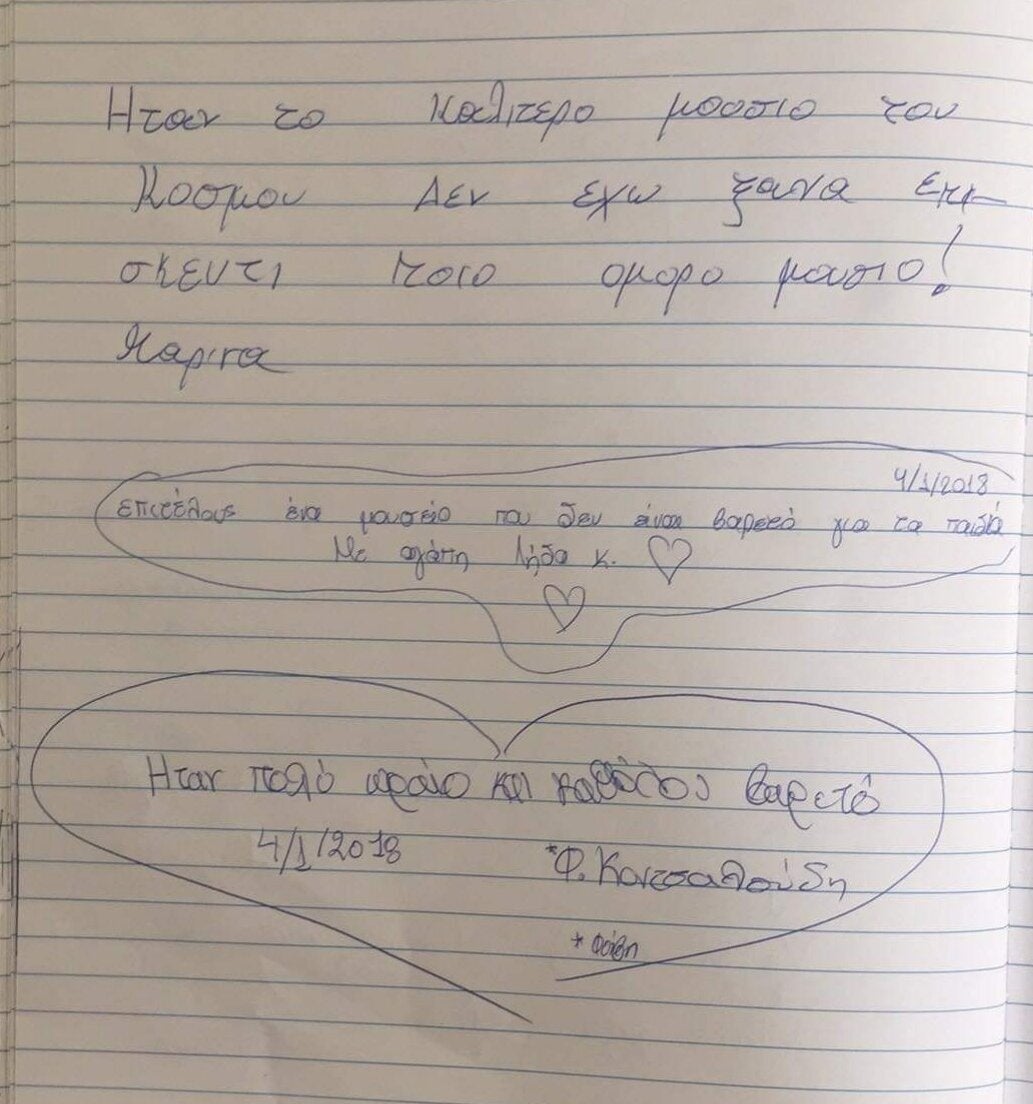 Ηταν το καλιτερο μουσιο του
Κοσμου Δεν εχω ξανα επι-
σκευτι ποιο ομορο μουσιο!
Μαρινα
4/1/2018
επιτέλους ένα μουσείο που δεν είναι βαρετό για τα παιδιά
Με αγάπη Λήδα κ.
Ηταν πολύ ωραίο και καθόλου βαρετό
4/1/2018
*Φ. Κουτσαλούδη
* Φοίβη